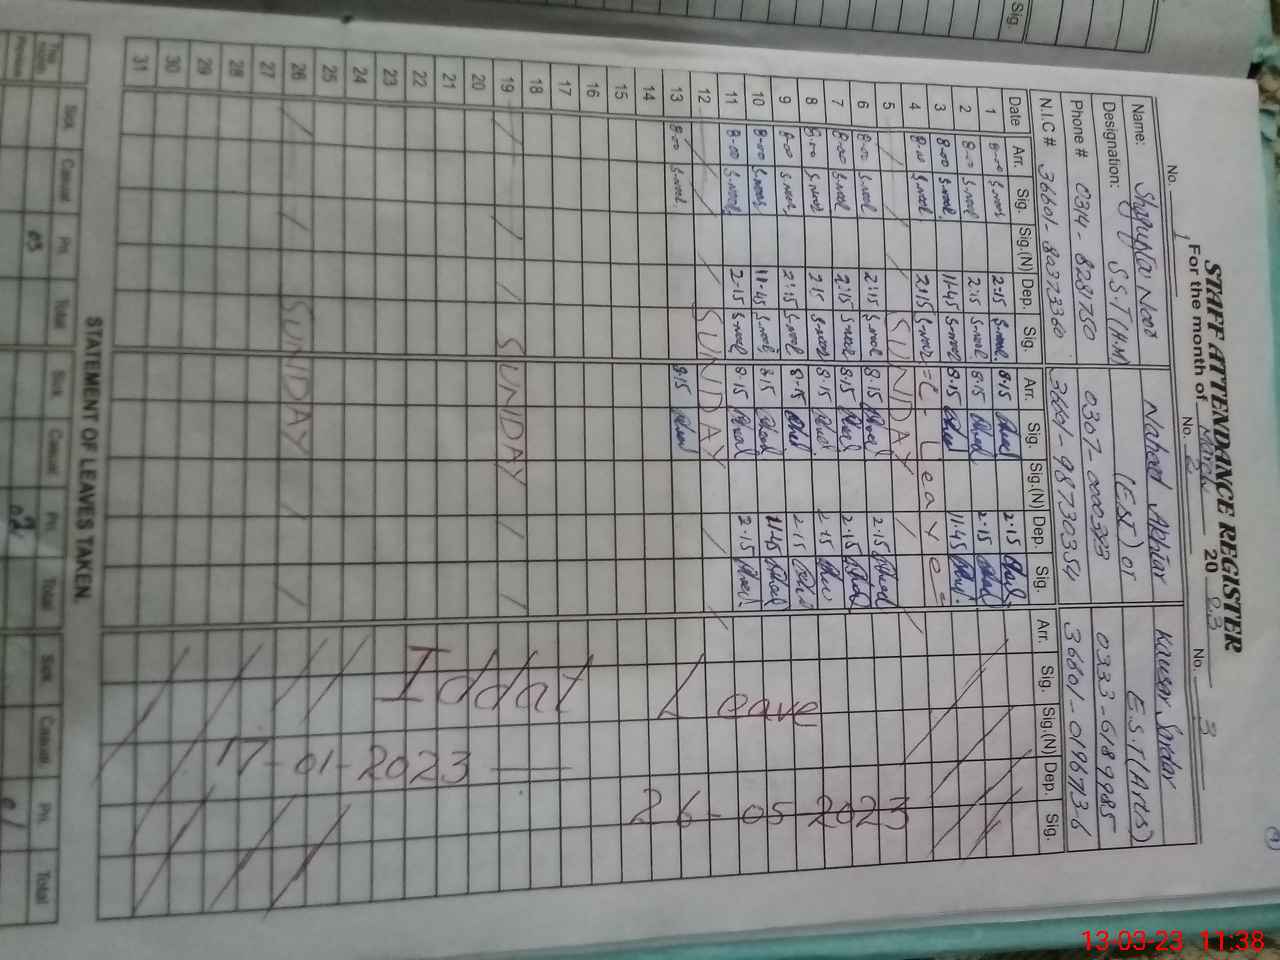 STAFF ATTENDANCE REGISTER
For the month of March 20 23
No. 1 No. 2 No. 3
Name: Noor Naheed Akhtar Kausar Sardar
Designation: S.S.T (H.M) (E.S.T) or E.S.T (Arts)
Phone # 0314-8281750 0307-0000383 0333-6189985
N.I.C # 36601-8a373360 36601-98730354 36601-0196736
Date Arr. Sig. Sig.(N) Dep. Sig. Arr. Sig. Sig.(N) Dep. Sig. Arr. Sig. Sig.(N) Dep. Sig.
1 8-00 S.noor 2:15 S.noor 8:15 2:15
2 8-00 S.noor 2:15 S.noor 8:15 2:15
3 8-00 S.noor 11-45 S.noor 8:15 11-45
4 8-00 S.noor 2:15 S.noor C-Leave
5 SUNDAY
6 8-00 S.noor 2:15 S.noor 8.15 2.15
7 8-00 S.noor 2:15 S.noor 8.15 2.15
8 8-00 S.noor 2:15 S.noor 8.15 2.15
9 8-00 S.noor 2:15 S.noor 8-15 2.15
10 8-00 S.noor 11-45 S.noor 8.15 11-45
11 8-00 S.noor 2-15 S.noor 8.15 2.15
12 SUNDAY
13 8-00 S.noor 8.15
14
15
16
17
18
19 SUNDAY
20
21
22
23
24
25
26 SUNDAY
27
28
29
30
31
Iddat Leave
17-01-2023 —
26-05-2023
STATEMENT OF LEAVES TAKEN.
This Month Sick Casual Pri. Total Sick Casual Pri. Total Sick Casual Pri. Total
Previous 03 02 01
Sig.
13-03-23 11:38